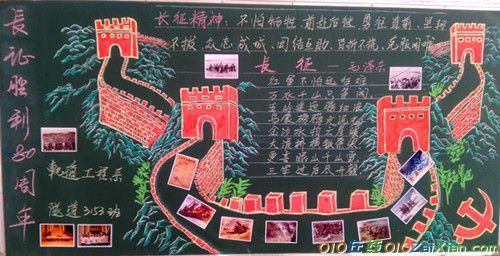 長征胜利80周年
长征精神：不怕牺牲 前赴后继 勇往直前 坚韧
不拔 众志成城 团结互助 百折不挠 克服困难
长征 —毛泽东
红军不怕远征难
万水千山只等闲
五岭逶迤腾细浪
乌蒙磅礴走泥丸
金沙水拍云崖暖
大渡桥横铁索寒
更喜岷山千里雪
三军过后尽开颜
轨道工程系
隧道3153班